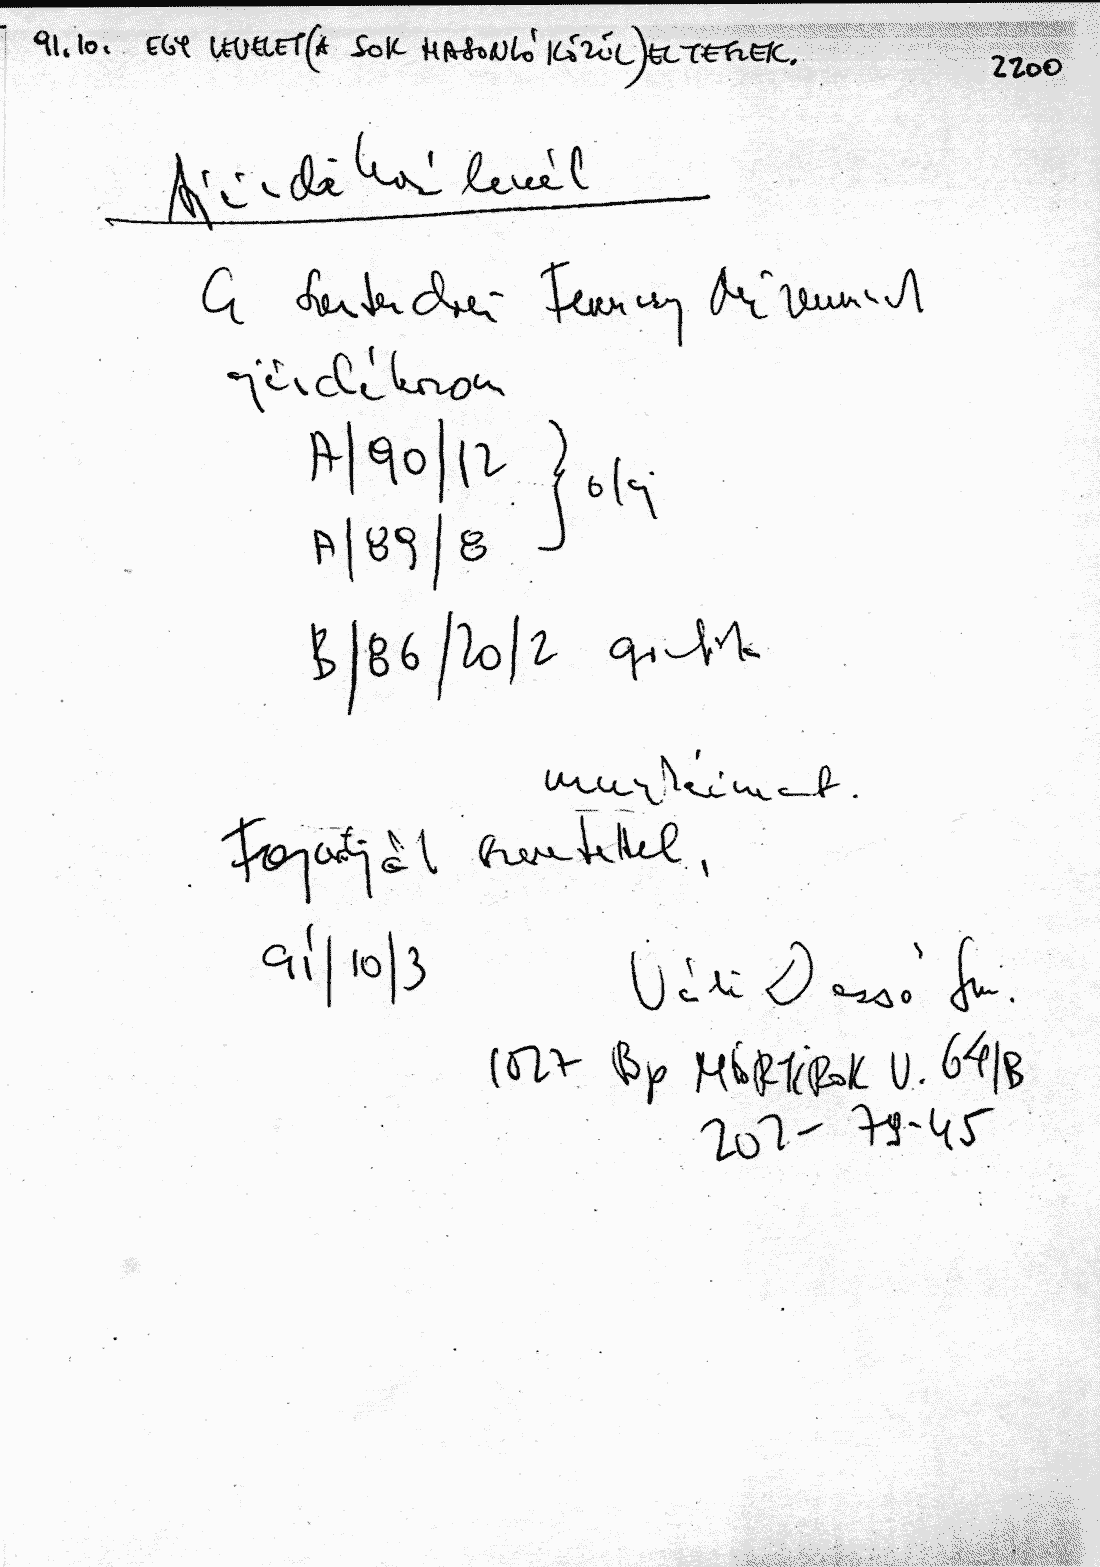 91.10. EGY LEVELET (A SOK HASONLÓ KÖZÜL) ELTETTEK.
2200
Ajándékozó levél
A szentendrei Ferenczy Múzeumnak
ajándékozom
A/90/12
olaj
A/89/8
B/86/20/2 grafika
munkáimat.
Fogadják szeretettel,
91/10/3
Váli Dezső fm.
1027 Bp MÁRTÍROK U. 64/B
202-79-45